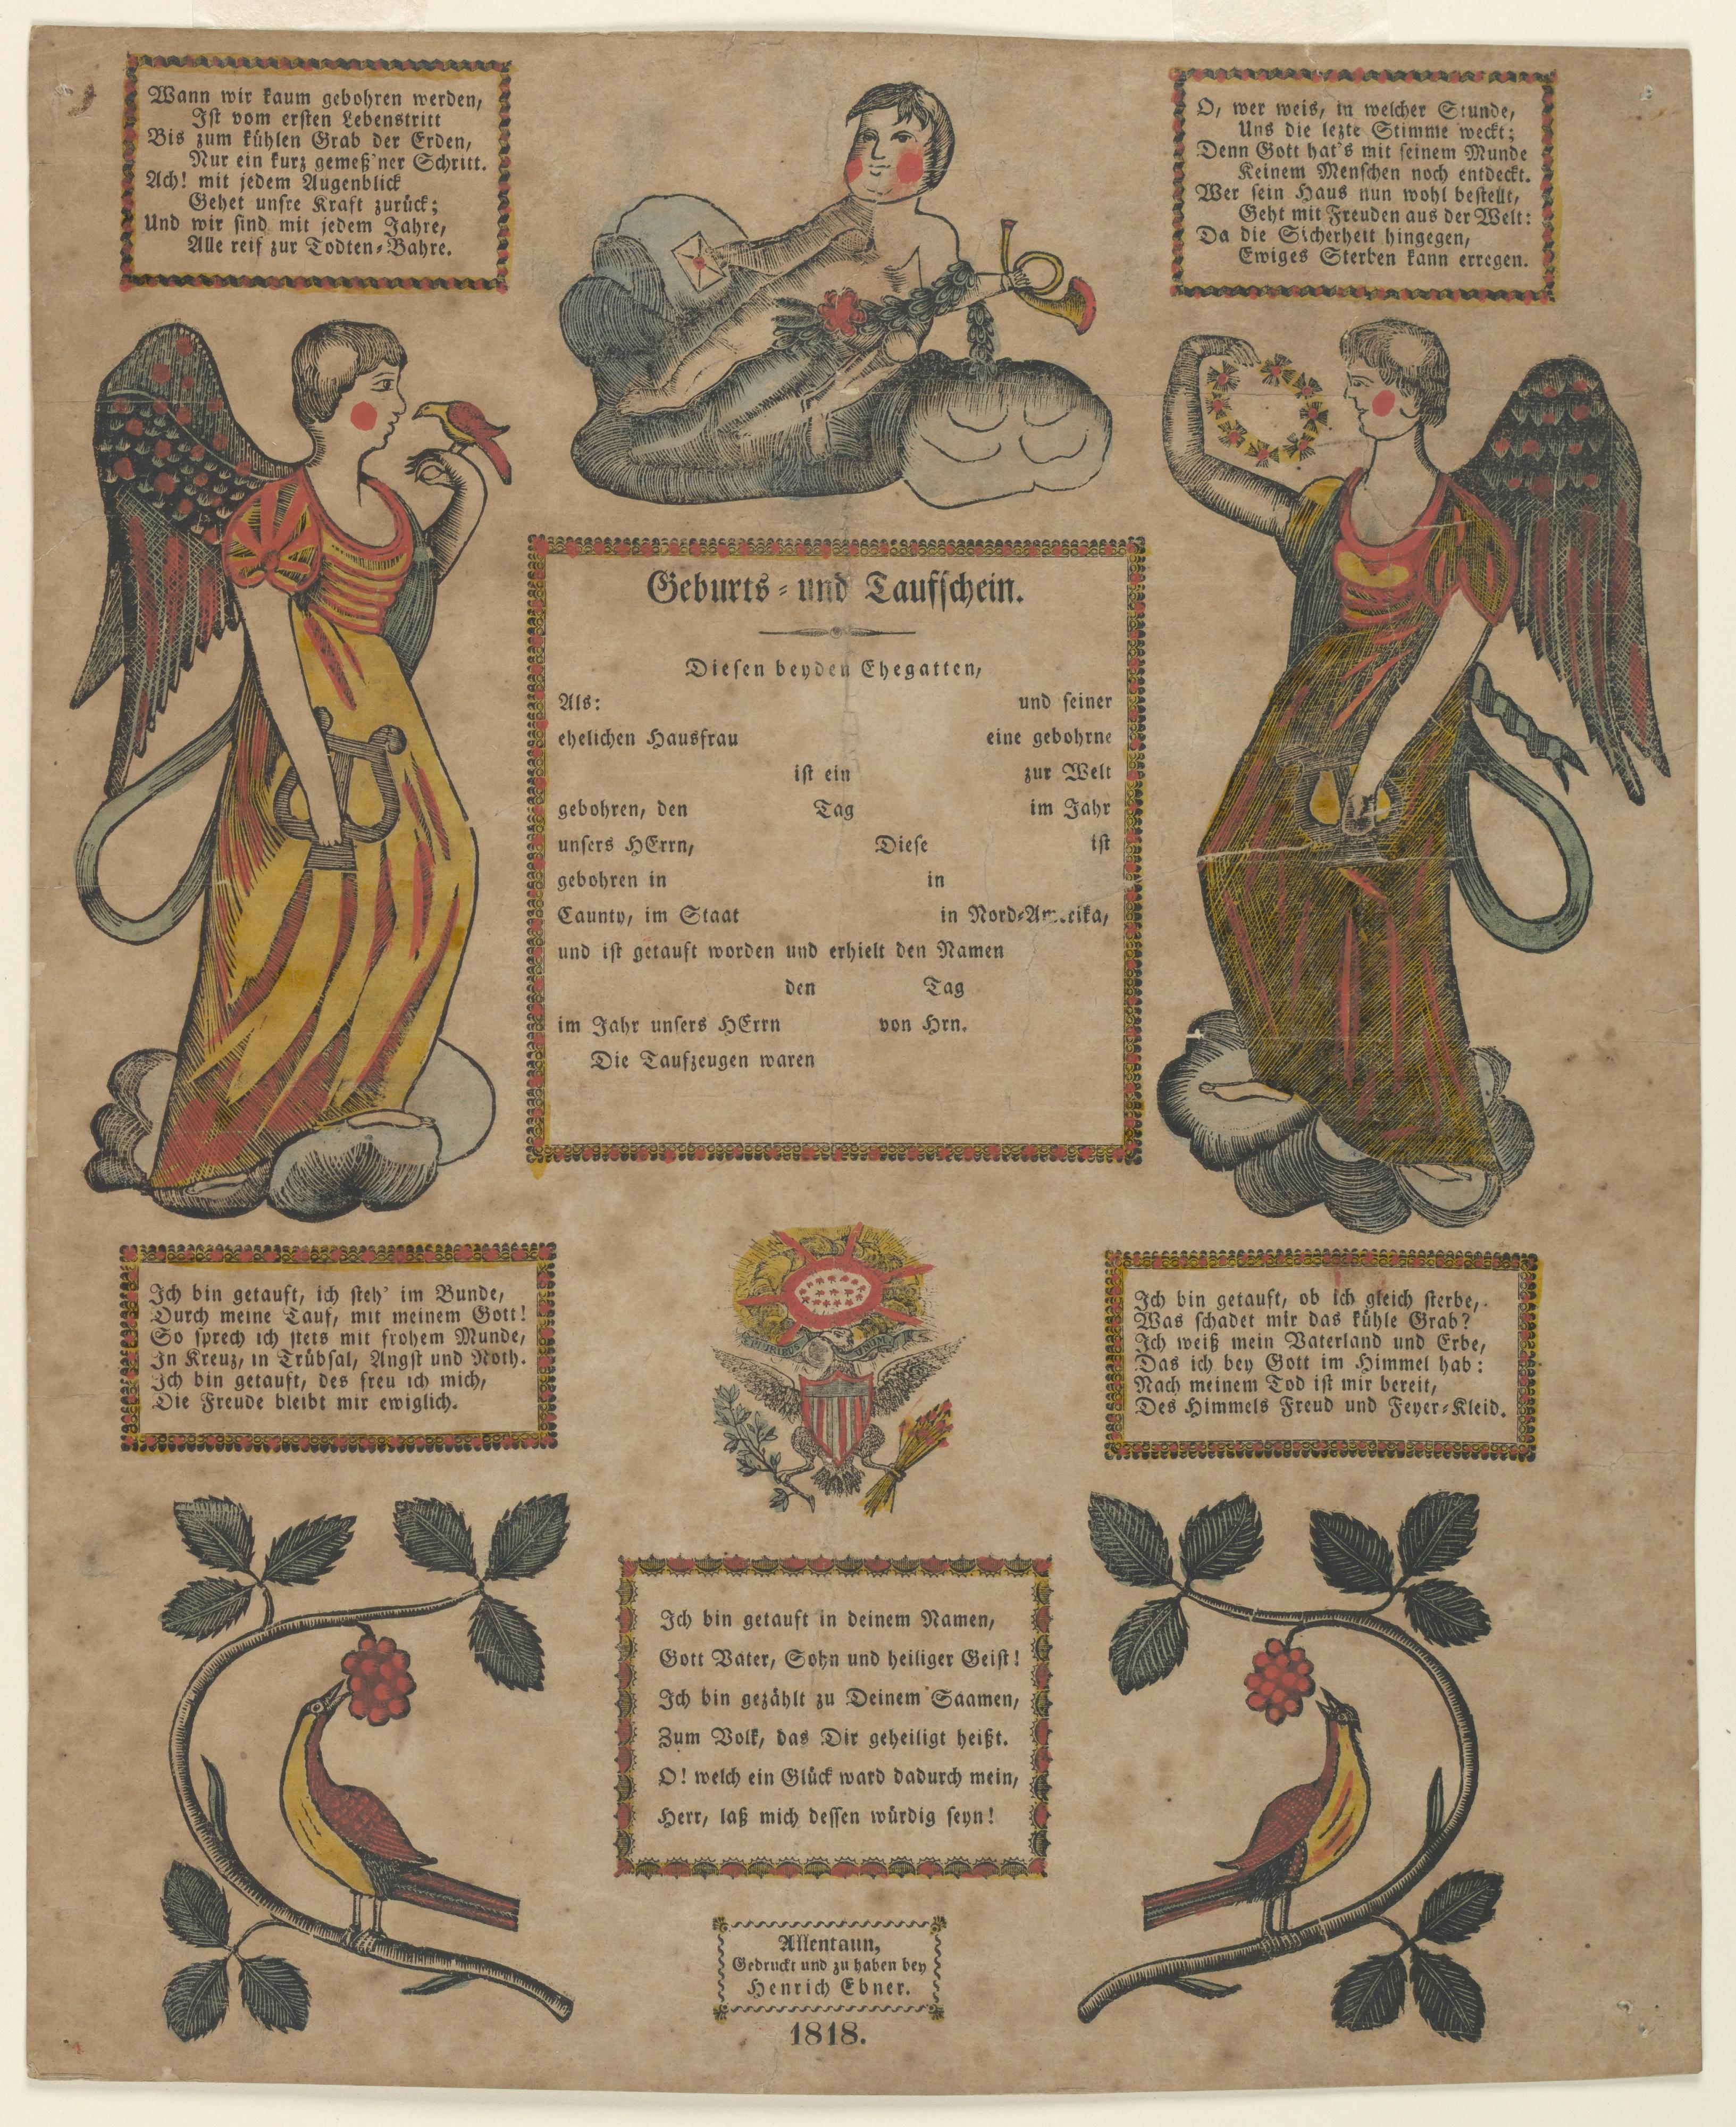 Wann wir kaum gebohren werden,
Ist vom ersten Lebenstritt
Bis zum kühlen Grab der Erden,
Nur ein kurz gemeß'ner Schritt.
Ach! mit jedem Augenblick
Gehet unsre Kraft zurück;
Und wir sind mit jedem Jahre,
Alle reif zur Todten-Bahre.
O, wer weis, in welcher Stunde,
Uns die lezte Stimme weckt;
Denn Gott hat's mit seinem Munde
Keinem Menschen noch entdeckt.
Wer sein Haus nun wohl bestellt,
Geht mit Freuden aus der Welt:
Da die Sicherheit hingegen,
Ewiges Sterben kann erregen.
Geburts- und Taufschein.
Diesen beyden Ehegatten,
Als: und seiner
ehelichen Hausfrau eine gebohrne
ist ein zur Welt
gebohren, den Tag im Jahr
unsers HErrn, Diese ist
gebohren in in
Caunty, im Staat in Nord-Amerika,
und ist getauft worden und erhielt den Namen
den Tag
im Jahr unsers HErrn von Hrn.
Die Taufzeugen waren
Ich bin getauft, ich steh' im Bunde,
Durch meine Tauf, mit meinem Gott!
So sprech ich stets mit frohem Munde,
In Kreuz, in Trübsal, Angst und Noth.
Ich bin getauft, des freu ich mich,
Die Freude bleibt mir ewiglich.
E PLURIBUS UNUM
Ich bin getauft, ob ich gleich sterbe,
Was schadet mir das kühle Grab?
Ich weiß mein Vaterland und Erbe,
Das ich bey Gott im Himmel hab:
Nach meinem Tod ist mir bereit,
Des Himmels Freud und Feyer-Kleid.
Ich bin getauft in deinem Namen,
Gott Vater, Sohn und heiliger Geist!
Ich bin gezählt zu Deinem Saamen,
Zum Volk, das Dir geheiligt heißt.
O! welch ein Glück ward dadurch mein,
Herr, laß mich dessen würdig seyn!
Allentaun,
Gedruckt und zu haben bey
Henrich Ebner.
1818.